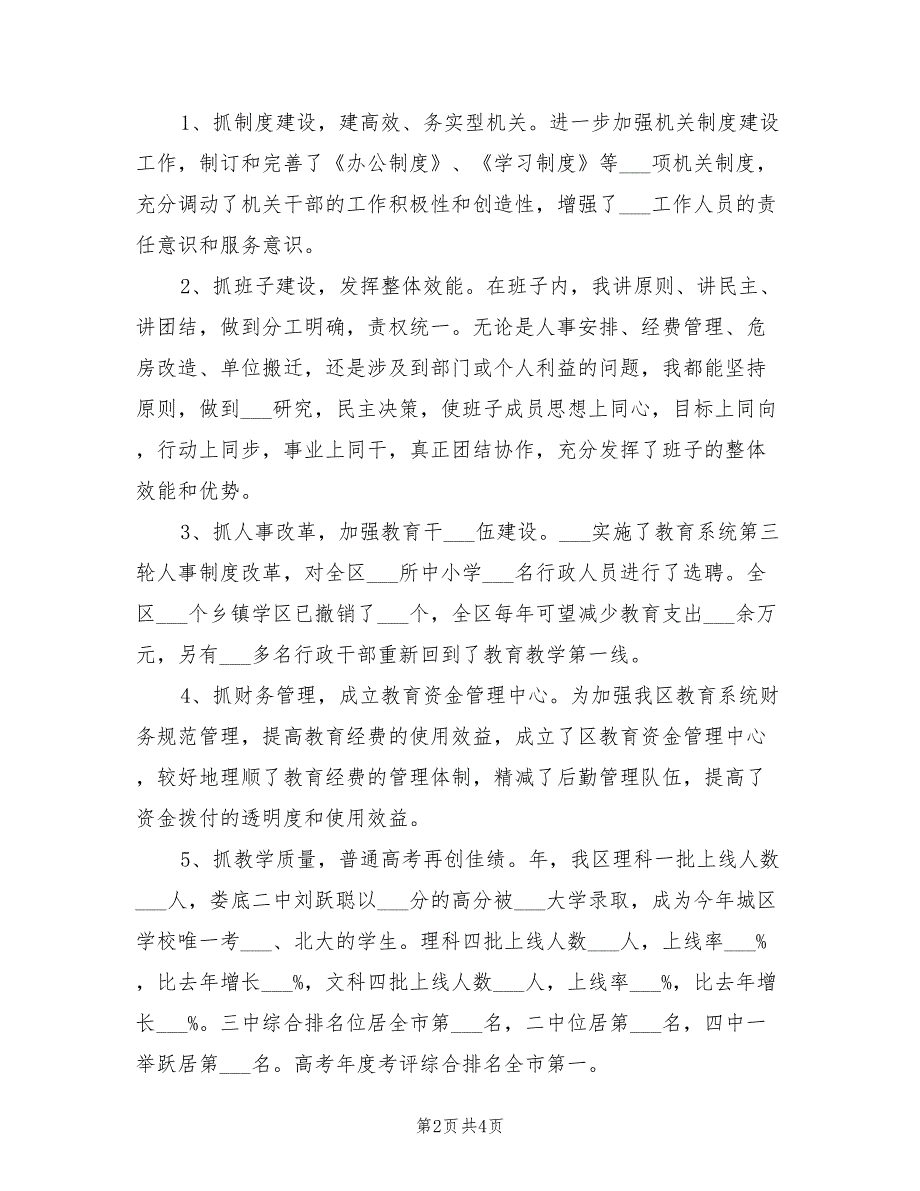 1、抓制度建设，建高效、务实型机关。进一步加强机关制度建设
工作，制订和完善了《办公制度》、《学习制度》等___项机关制度，
充分调动了机关干部的工作积极性和创造性，增强了___工作人员的责
任意识和服务意识。
2、抓班子建设，发挥整体效能。在班子内，我讲原则、讲民主、
讲团结，做到分工明确，责权统一。无论是人事安排、经费管理、危
房改造、单位搬迁，还是涉及到部门或个人利益的问题，我都能坚持
原则，做到___研究，民主决策，使班子成员思想上同心，目标上同向
，行动上同步，事业上同干，真正团结协作，充分发挥了班子的整体
效能和优势。
3、抓人事改革，加强教育干___伍建设。___实施了教育系统第三
轮人事制度改革，对全区___所中小学___名行政人员进行了选聘。全
区___个乡镇学区已撤销了___个，全区每年可望减少教育支出___余万
元，另有___多名行政干部重新回到了教育教学第一线。
4、抓财务管理，成立教育资金管理中心。为加强我区教育系统财
务规范管理，提高教育经费的使用效益，成立了区教育资金管理中心
，较好地理顺了教育经费的管理体制，精减了后勤管理队伍，提高了
资金拨付的透明度和使用效益。
5、抓教学质量，普通高考再创佳绩。年，我区理科一批上线人数
___人，娄底二中刘跃聪以___分的高分被___大学录取，成为今年城区
学校唯一考___、北大的学生。理科四批上线人数___人，上线率___%
，比去年增长___%，文科四批上线人数___人，上线率___%，比去年增
长___%。三中综合排名位居全市第___名，二中位居第___名，四中一
举跃居第___名。高考年度考评综合排名全市第一。
第2页共4页